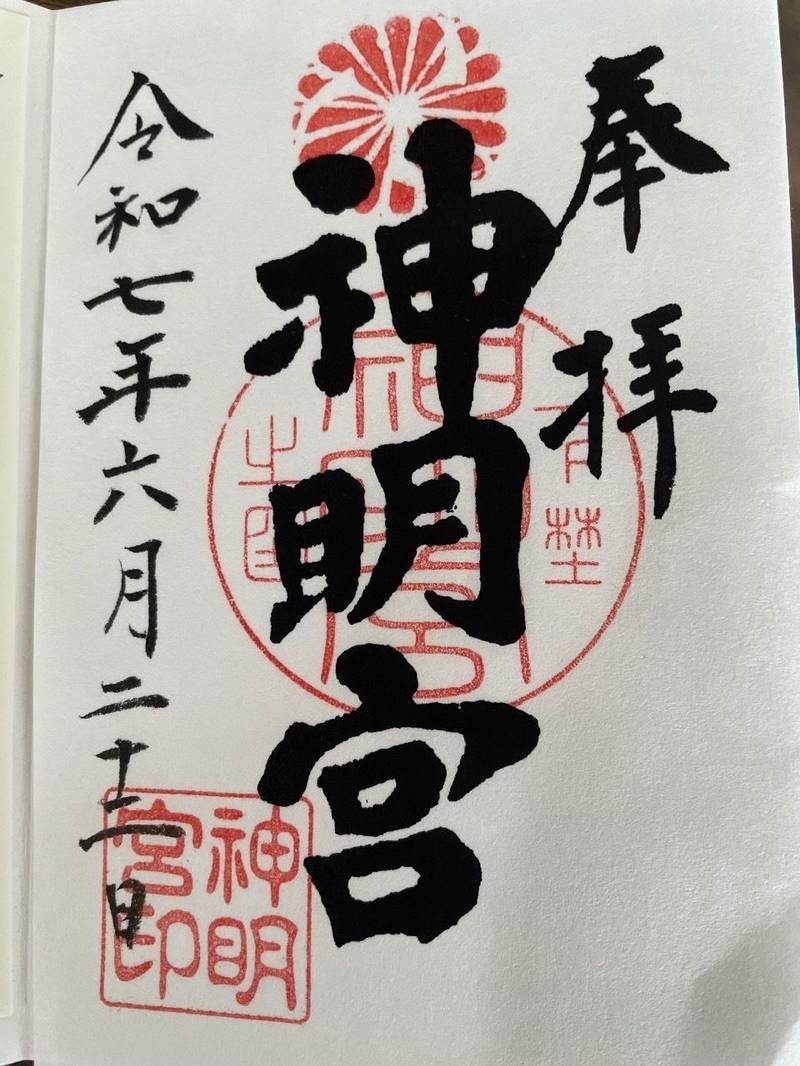 奉拝
神明宮
令和七年六月二十二日
神明宮
神明宮印